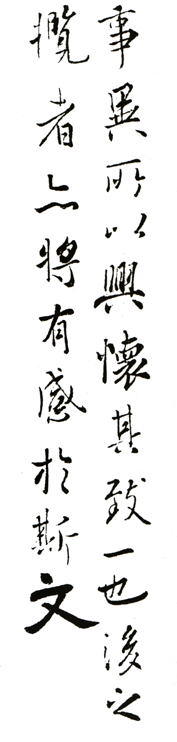 事異所以興懷其致一也後之
攬者亦將有感於斯文